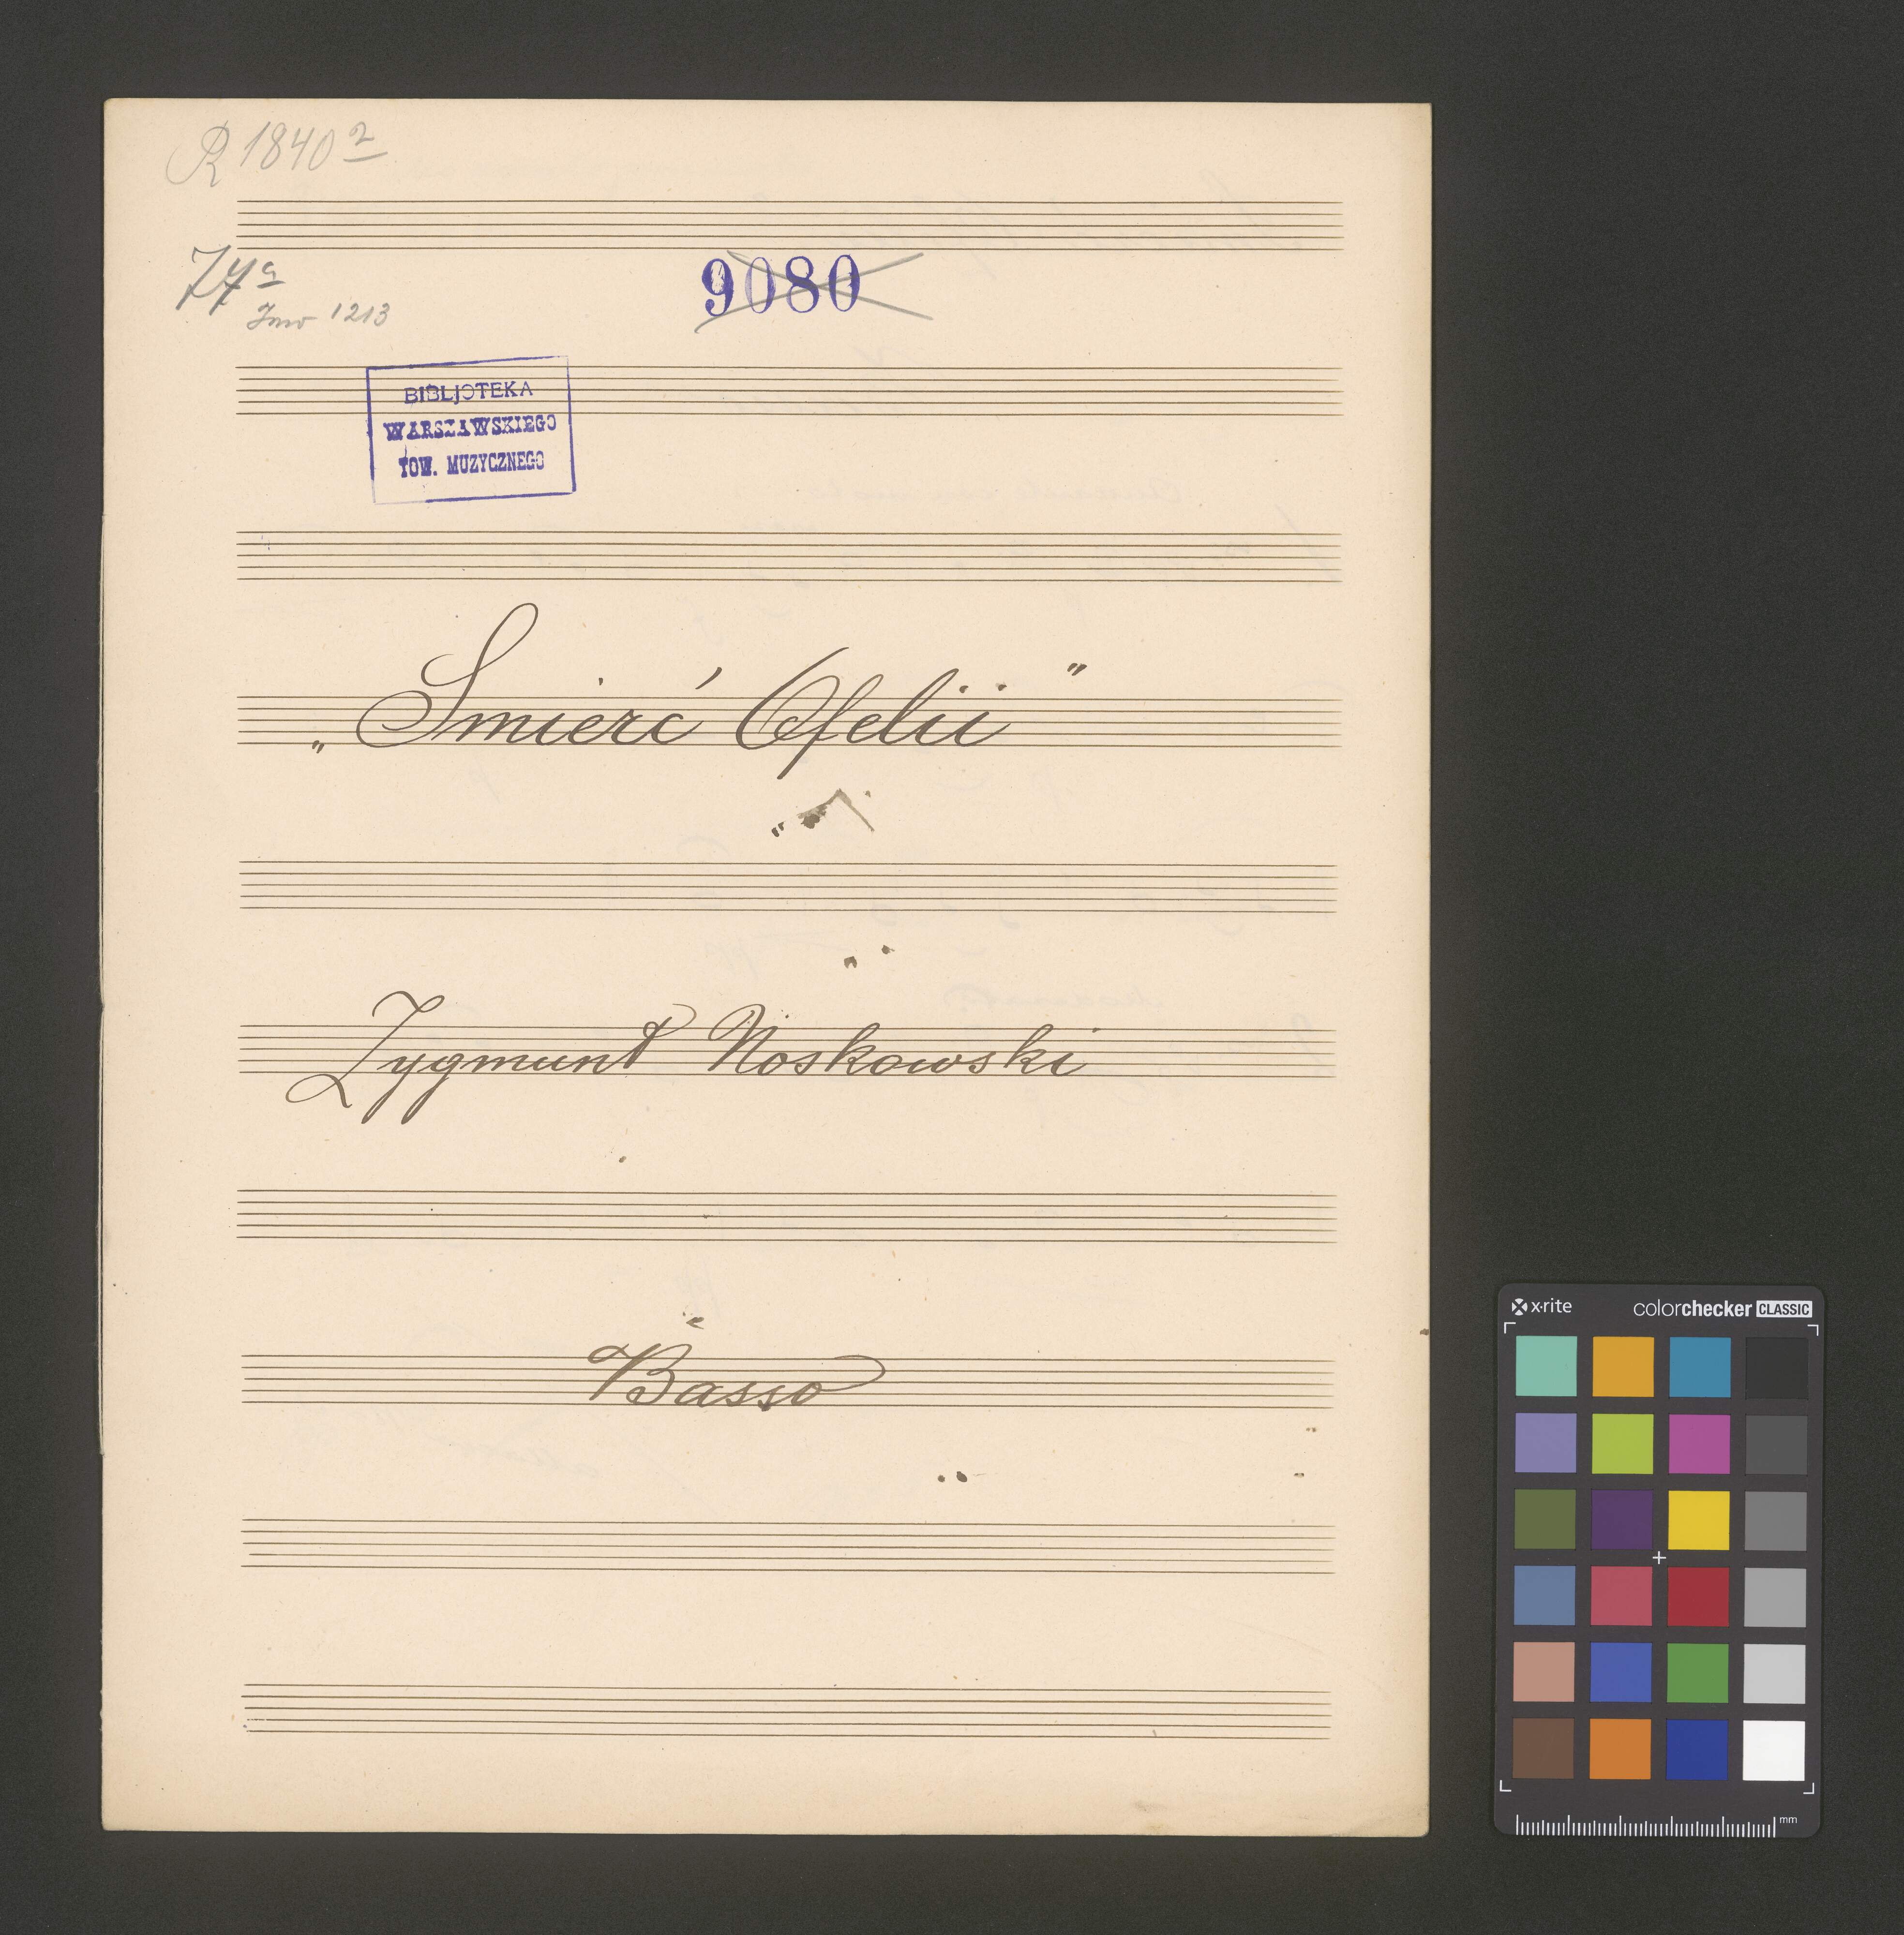 R 1840 2
74a
Inw 1213
9080
BIBLJOTEKA
WARSZAWSKIEGO
TOW. MUZYCZNEGO
„Smierć Ofelii"
Zygmunt Noskowski
Basso
x·rite colorchecker CLASSIC
mm